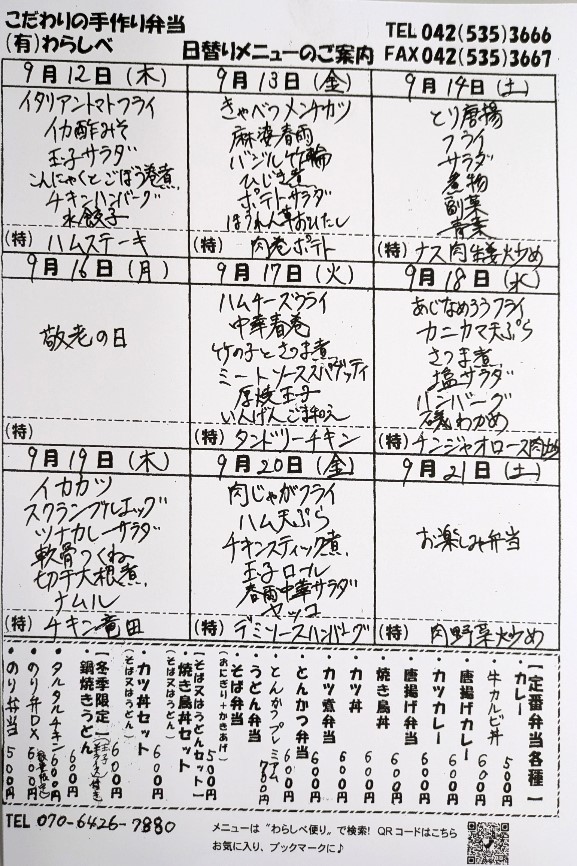 こだわりの手作り弁当
(有)わらしべ
日替りメニューのご案内
TEL 042(535)3666
FAX 042(535)3667
9月12日(木)
イタリアントマトフライ
イカ酢みそ
玉子サラダ
こんにゃくとごぼう巻煮
チキンハンバーグ
水餃子
(特) ハムステーキ
9月13日(金)
きゃべつメンチカツ
麻婆春雨
バジル竹輪
ひじき煮
ポテトサラダ
ほうれん草おひたし
(特) 肉巻ポテト
9月14日(土)
とり唐揚
フライ
サラダ
煮物
副菜
青菜
(特) ナス肉生姜炒め
9月16日(月)
敬老の日
(特)
9月17日(火)
ハムチーズフライ
中華春巻
竹の子とさつま煮
ミートソーススパゲッティ
厚焼玉子
いんげんごま和え
(特) タンドリーチキン
9月18日(水)
あじなめろうフライ
カニカマ天ぷら
さつま煮
塩サラダ
ハンバーグ
磯わかめ
(特) チンジャオロース肉炒め
9月19日(木)
イカカツ
スクランブルエッグ
ツナカレーサラダ
軟骨つくね
切干大根煮
ナムル
(特) チキン竜田
9月20日(金)
肉じゃがフライ
ハム天ぷら
チキンスティック煮
玉子ロール
春雨中華サラダ
ヤッコ
(特) デミソースハンバーグ
9月21日(土)
お楽しみ弁当
(特) 肉野菜炒め
【定番弁当各種】
・カレー 500円
・牛カルビ丼 600円
・唐揚げカレー 600円
・カツカレー 600円
・唐揚げ弁当 600円
・焼き鳥丼 600円
・カツ丼 600円
・カツ煮弁当 600円
・とんかつ弁当 600円
・とんかつプレミアム 760円
・うどん弁当
・そば弁当
(おにぎり+かきあげ) 500円
【そば又はうどんセット】
・焼き鳥丼セット
(そば又はうどん) 600円
・カツ丼セット
(そば又はうどん) 600円
【冬季限定】
・鍋焼きうどん 600円
・タルタルチキン 600円
・のり弁DX 600円
・のり弁当 500円
TEL 070-6426-7880
メニューは"わらしべ便り"で検索! QRコードはこちら
お気に入り、ブックマークに♪